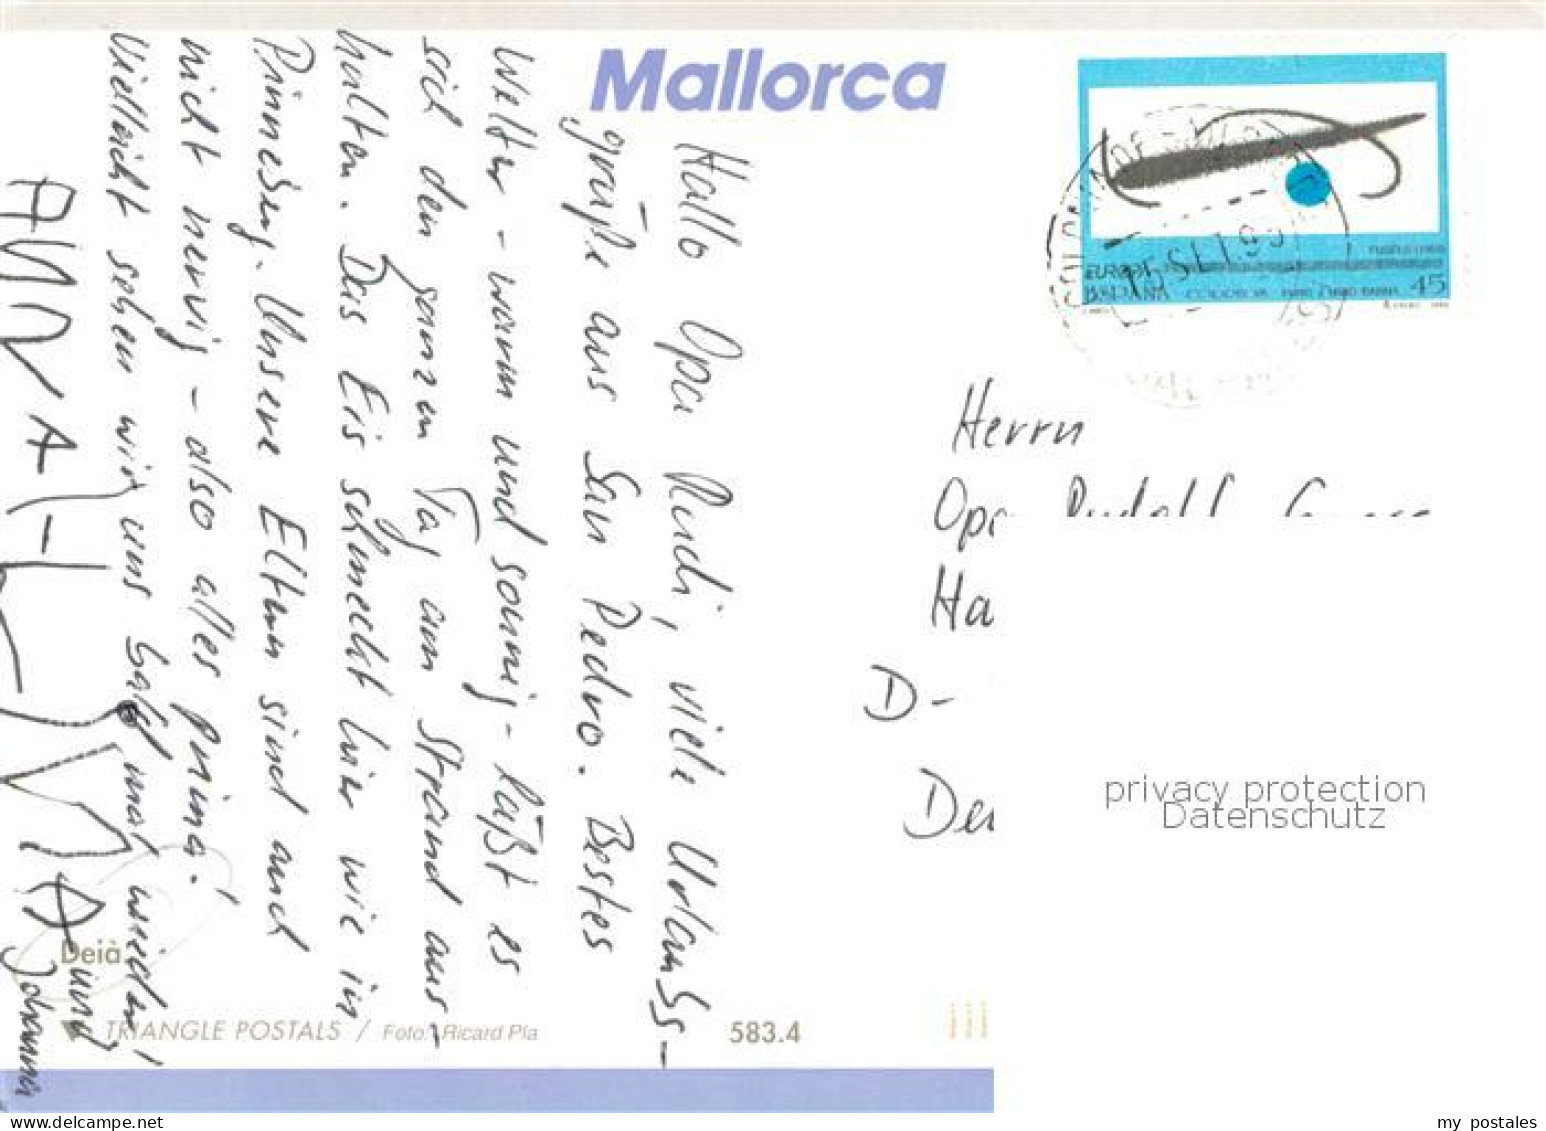 Mallorca
Hallo Opa Rudi, viele Urlaubs-
grüße aus San Pedro. Bestes
Wetter - warm und sonnig - läßt es
sich den ganzen Tag am Strand aus-
halten. Das Eis schmeckt hier wie in
Pinneberg. Unsere Eltern sind auch
nicht nervig - also alles prima.
Vielleicht sehen wir uns bald mal wieder!
ANNA-LENA und Johanna
EUROPA
ESPAÑA
45
Herrn
Opa Rudolf
Ha
D-
privacy protection
Datenschutz
Deià
TRIANGLE POSTALS / Foto: Ricard Pla
583.4
my postales